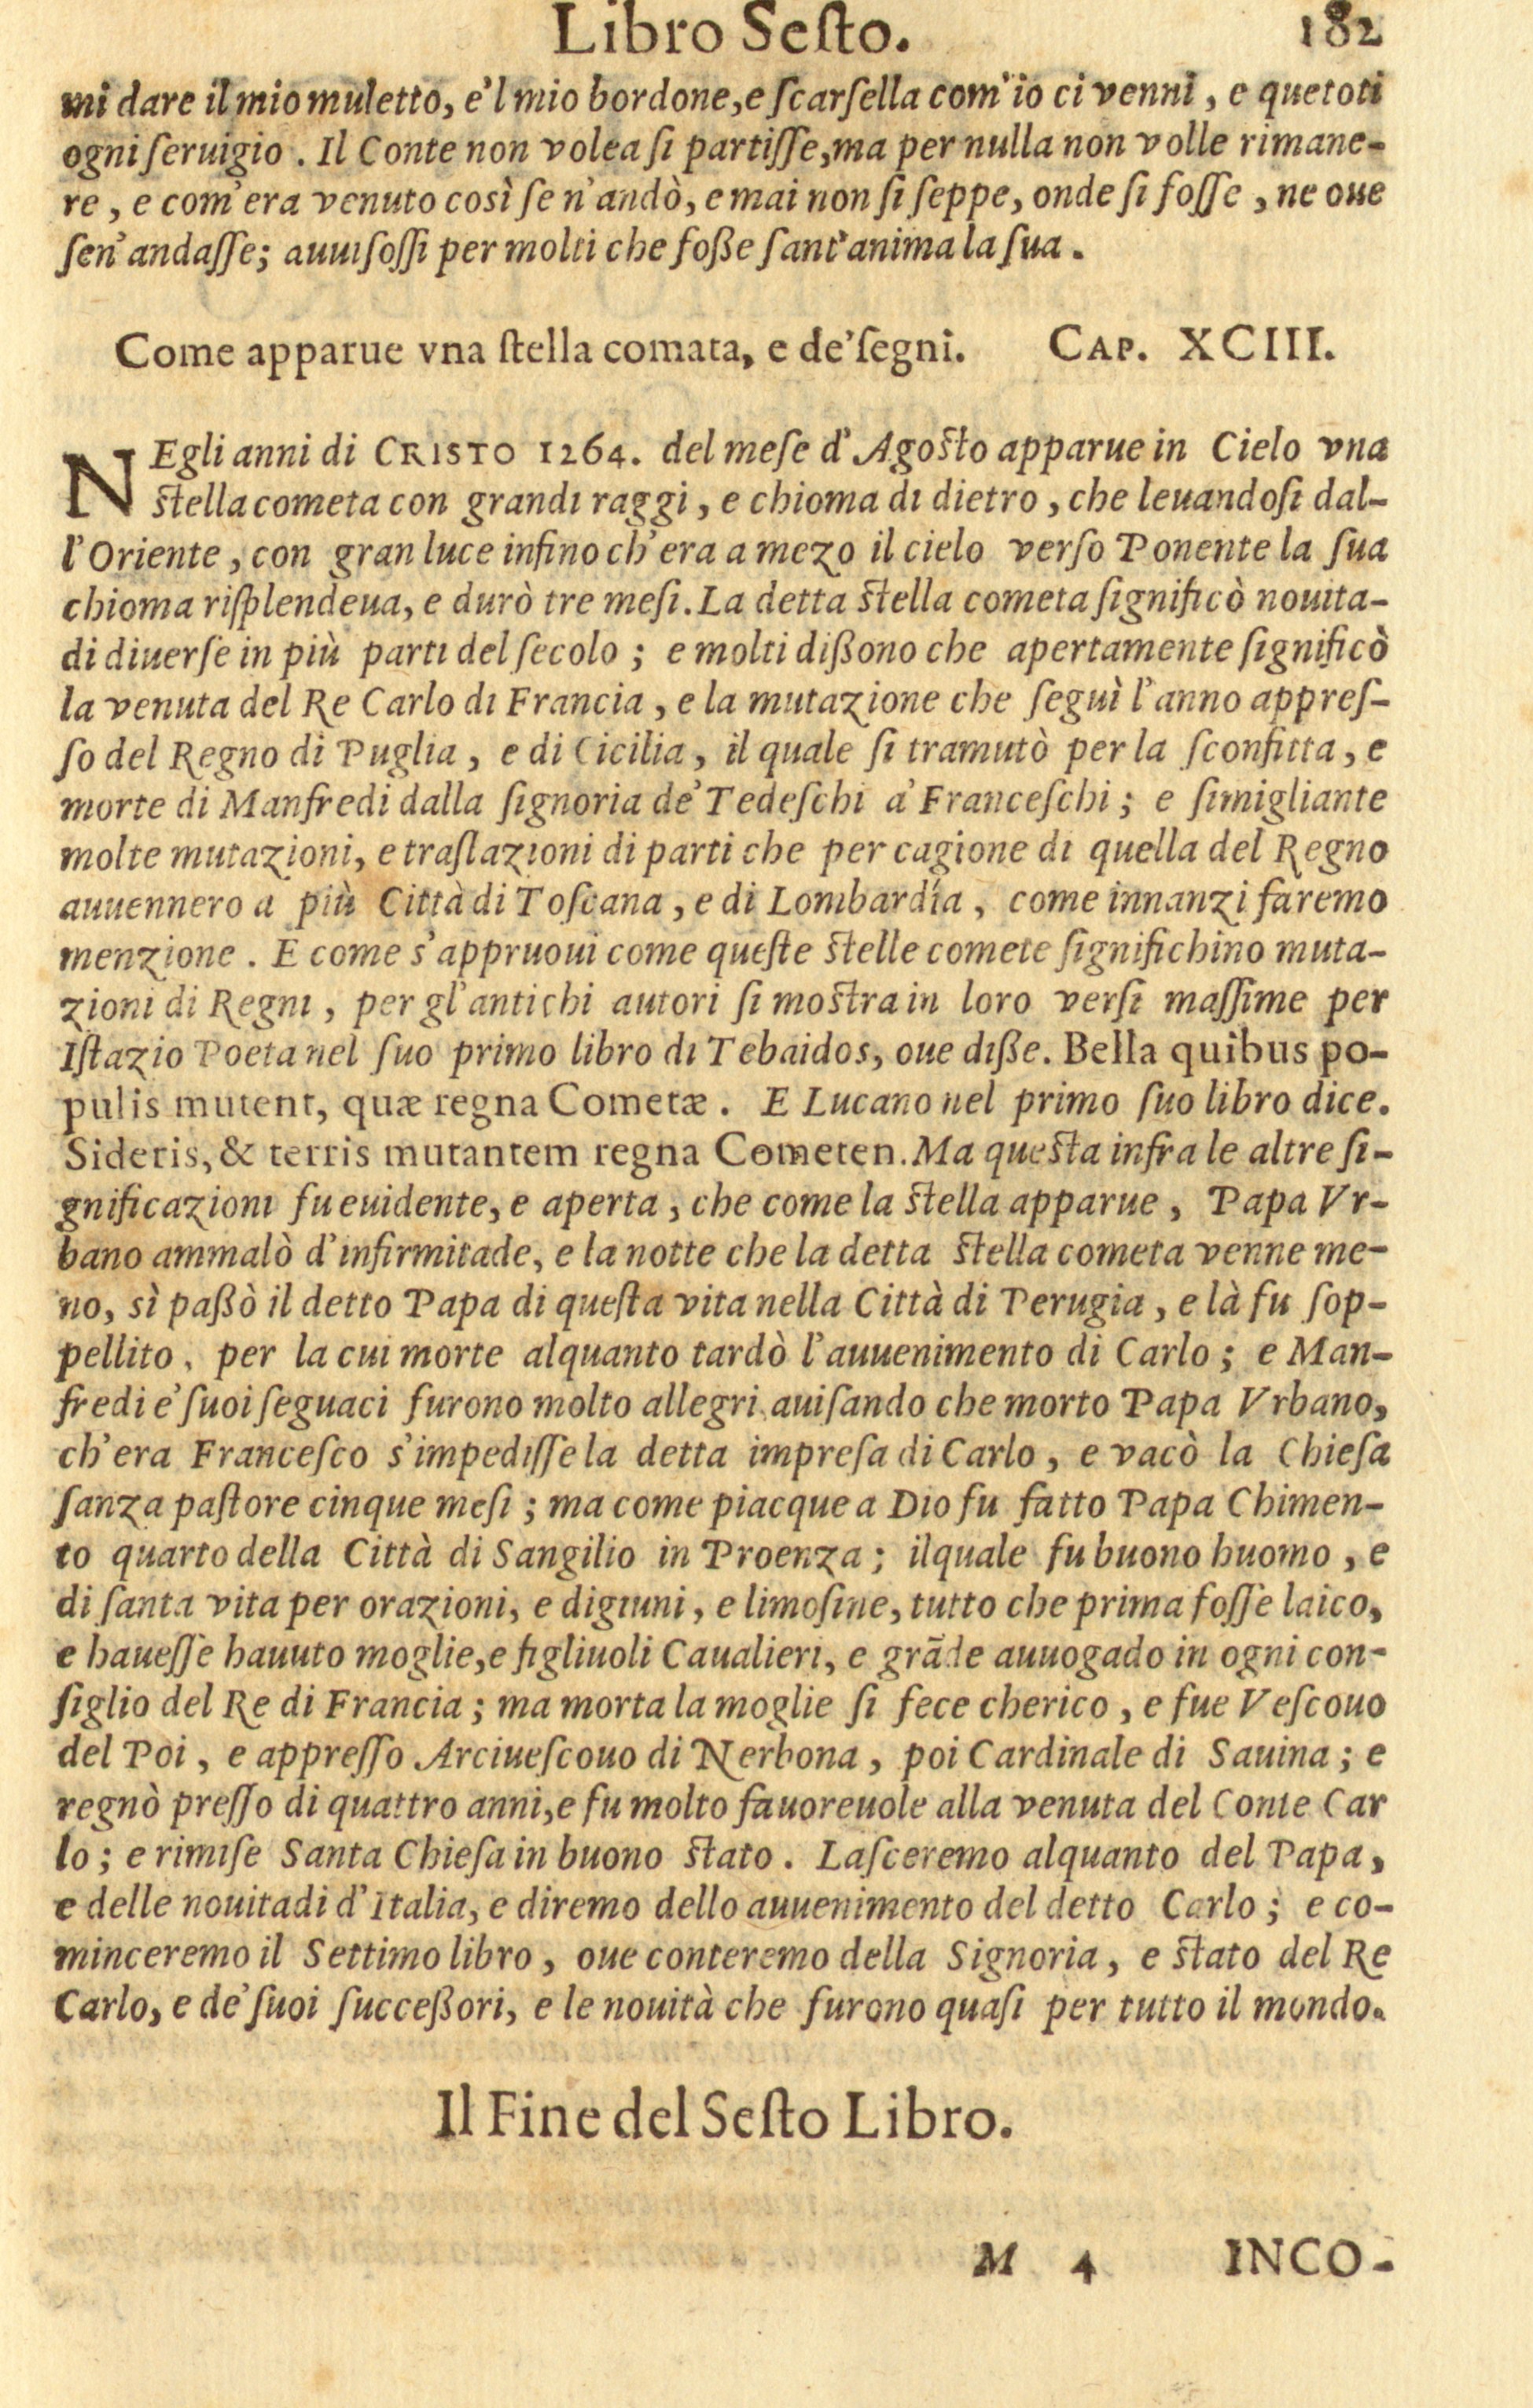 Libro Seſto. 182
mi dare il mio muletto, e'l mio bordone, e ſcarſella com'io ci venni, e quetoti
ogni ſeruigio. Il Conte non volea ſi partiſſe, ma per nulla non volle rimane-
re, e com'era venuto così ſe n'andò, e mai non ſi ſeppe, onde ſi foſſe, ne oue
ſen'andaſſe; auuiſoſſi per molti che foße ſant'anima la ſua.
Come apparue vna ſtella comata, e de'ſegni. CAP. XCIII.
NEgli anni di CRISTO 1264. del meſe d'Agoſto apparue in Cielo vna
ſtella cometa con grandi raggi, e chioma di dietro, che leuandoſi dal-
l'Oriente, con gran luce infino ch'era a mezo il cielo verſo Ponente la ſua
chioma riſplendeua, e durò tre meſi. La detta ſtella cometa ſignificò nouita-
di diuerſe in più parti del ſecolo; e molti dißono che apertamente ſignificò
la venuta del Re Carlo di Francia, e la mutazione che ſeguì l'anno appreſ-
ſo del Regno di Puglia, e di Cicilia, il quale ſi tramutò per la ſconfitta, e
morte di Manfredi dalla ſignoria de'Tedeſchi a'Franceſchi; e ſimigliante
molte mutazioni, e traſlazioni di parti che per cagione di quella del Regno
auuennero a più Città di Toſcana, e di Lombardía, come innanzi faremo
menzione. E come s'appruoui come queſte ſtelle comete ſignifichino muta-
zioni di Regni, per gl'antichi autori ſi moſtra in loro verſi maſſime per
Iſtazio Poeta nel ſuo primo libro di Tebaidos, oue diße. Bella quibus po-
pulis mutent, quæ regna Cometæ. E Lucano nel primo ſuo libro dice.
Sideris, & terris mutantem regna Cometen. Ma queſta infra le altre ſi-
gnificazioni fu euidente, e aperta, che come la ſtella apparue, Papa Vr-
bano ammalò d'infirmitade, e la notte che la detta ſtella cometa venne me-
no, sì paßò il detto Papa di queſta vita nella Città di Perugia, e là fu ſop-
pellito, per la cui morte alquanto tardò l'auuenimento di Carlo; e Man-
fredi e'ſuoi ſeguaci furono molto allegri, auiſando che morto Papa Vrbano,
ch'era Franceſco s'impediſſe la detta impreſa di Carlo, e vacò la Chieſa
ſanza paſtore cinque meſi; ma come piacque a Dio fu fatto Papa Chimen-
to quarto della Città di Sangilio in Proenza; ilquale fu buono huomo, e
di ſanta vita per orazioni, e digiuni, e limoſine, tutto che prima foſſe laico,
e haueſſe hauuto moglie, e figliuoli Caualieri, e grãde auuogado in ogni con-
ſiglio del Re di Francia; ma morta la moglie ſi fece cherico, e fue Veſcouo
del Poi, e appreſſo Arciueſcouo di Nerbona, poi Cardinale di Sauina; e
regnò preſſo di quattro anni, e fu molto fauoreuole alla venuta del Conte Car
lo; e rimiſe Santa Chieſa in buono ſtato. Laſceremo alquanto del Papa,
e delle nouitadi d'Italia, e diremo dello auuenimento del detto Carlo; e co-
minceremo il Settimo libro, oue conteremo della Signoria, e ſtato del Re
Carlo, e de'ſuoi ſucceßori, e le nouità che furono quaſi per tutto il mondo.
Il Fine del Seſto Libro.
M 4 INCO-